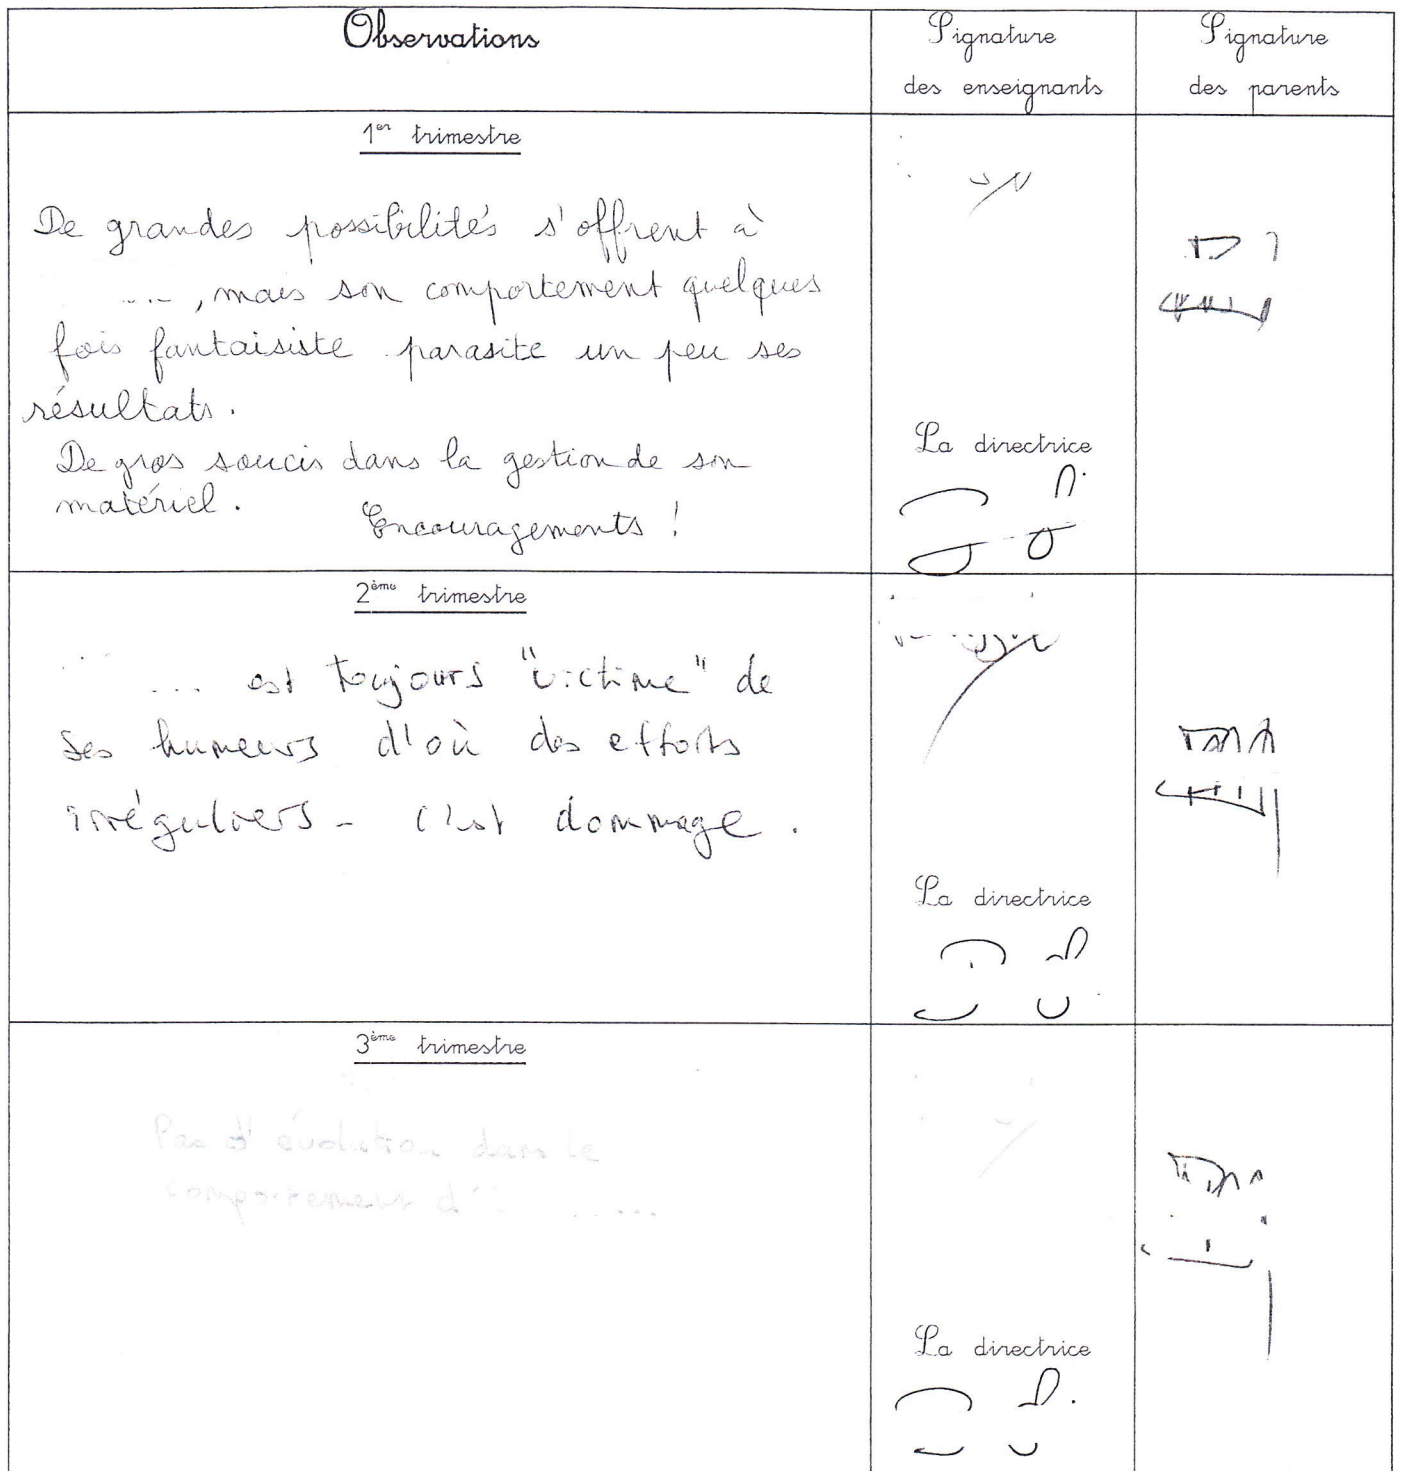 Observations
Signature
des enseignants
Signature
des parents
1er trimestre
De grandes possibilités s'offrent à
..., mais son comportement quelques
fois fantaisiste parasite un peu ses
résultats.
De gros soucis dans la gestion de son
matériel.
Encouragements !
La directrice
2ème trimestre
... est toujours "victime" de
ses humeurs d'où des efforts
irréguliers - c'est dommage.
La directrice
3ème trimestre
Pas d'évolution dans le
comportement d' .....
La directrice